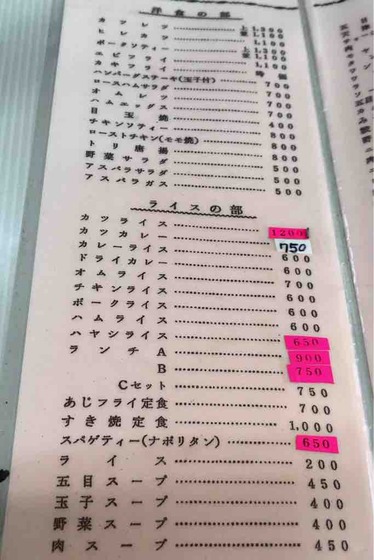 洋食の部
カツレツ
ヒレカツ
ポークソティー
エビフライ
カキフライ
ハンバーグステーキ(玉子付)
ロースハムサラダ 700
オムレツ 700
ハムエッグス 700
目玉焼 400
チキンソティー 800
ローストチキン(モモ焼) 800
トリ唐揚 800
野菜サラダ 500
アスパラサラダ 500
アスパラガス 500
ライスの部
カツライス 1200
カツカレー 750
カレーライス 600
ドライカレー 600
オムライス 700
チキンライス 600
ポークライス 600
ハムライス 600
ハヤシライス 650
ランチA 900
B 750
Cセット 750
あじフライ定食 700
すき焼定食 1,000
スパゲティー(ナポリタン) 650
ライス 200
五目スープ 450
玉子スープ 400
野菜スープ 400
肉スープ 450